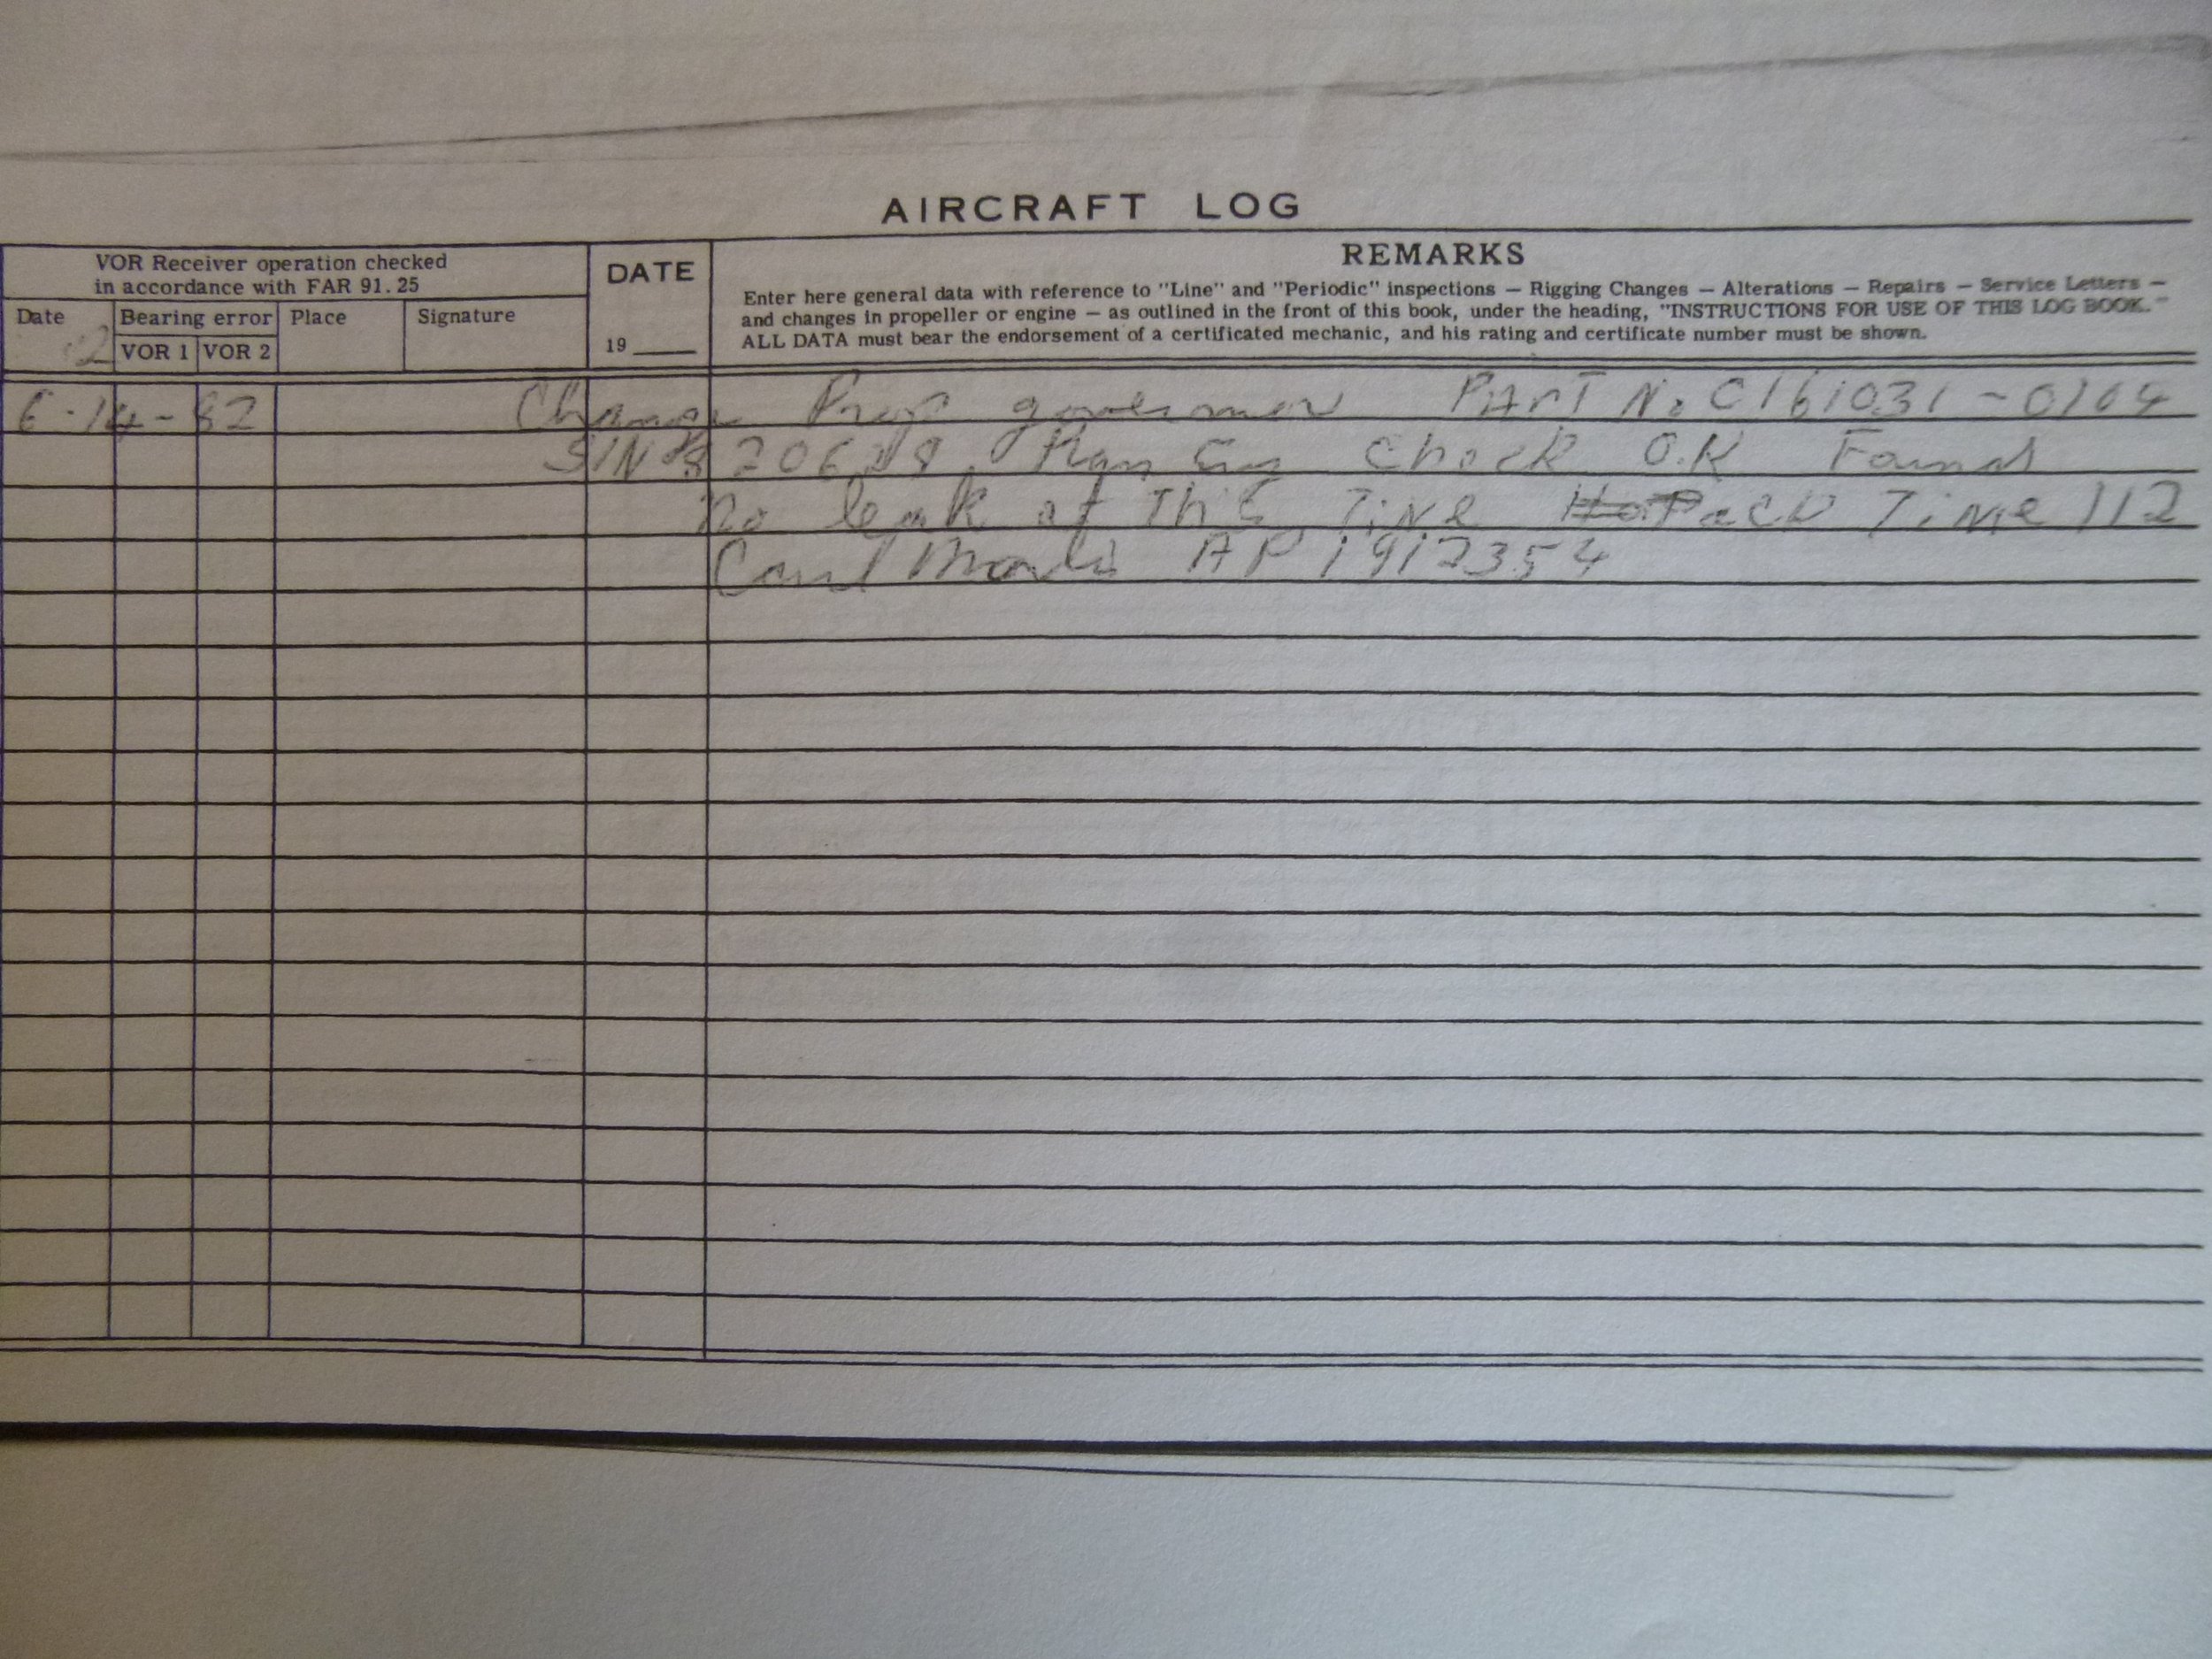 AIRCRAFT LOG
VOR Receiver operation checked
in accordance with FAR 91.25
Date
Bearing error
Place
Signature
VOR 1
VOR 2
DATE
19
REMARKS
Enter here general data with reference to "Line" and "Periodic" inspections — Rigging Changes — Alterations — Repairs — Service Letters —
and changes in propeller or engine — as outlined in the front of this book, under the heading, "INSTRUCTIONS FOR USE OF THIS LOG BOOK."
ALL DATA must bear the endorsement of a certificated mechanic, and his rating and certificate number must be shown.
6-14-82 Change Prop governor PArT No C161031-0104
S/N Run Eng Check O.K Found
no leak at This Time Tach Time 112
Carl AP 1912354